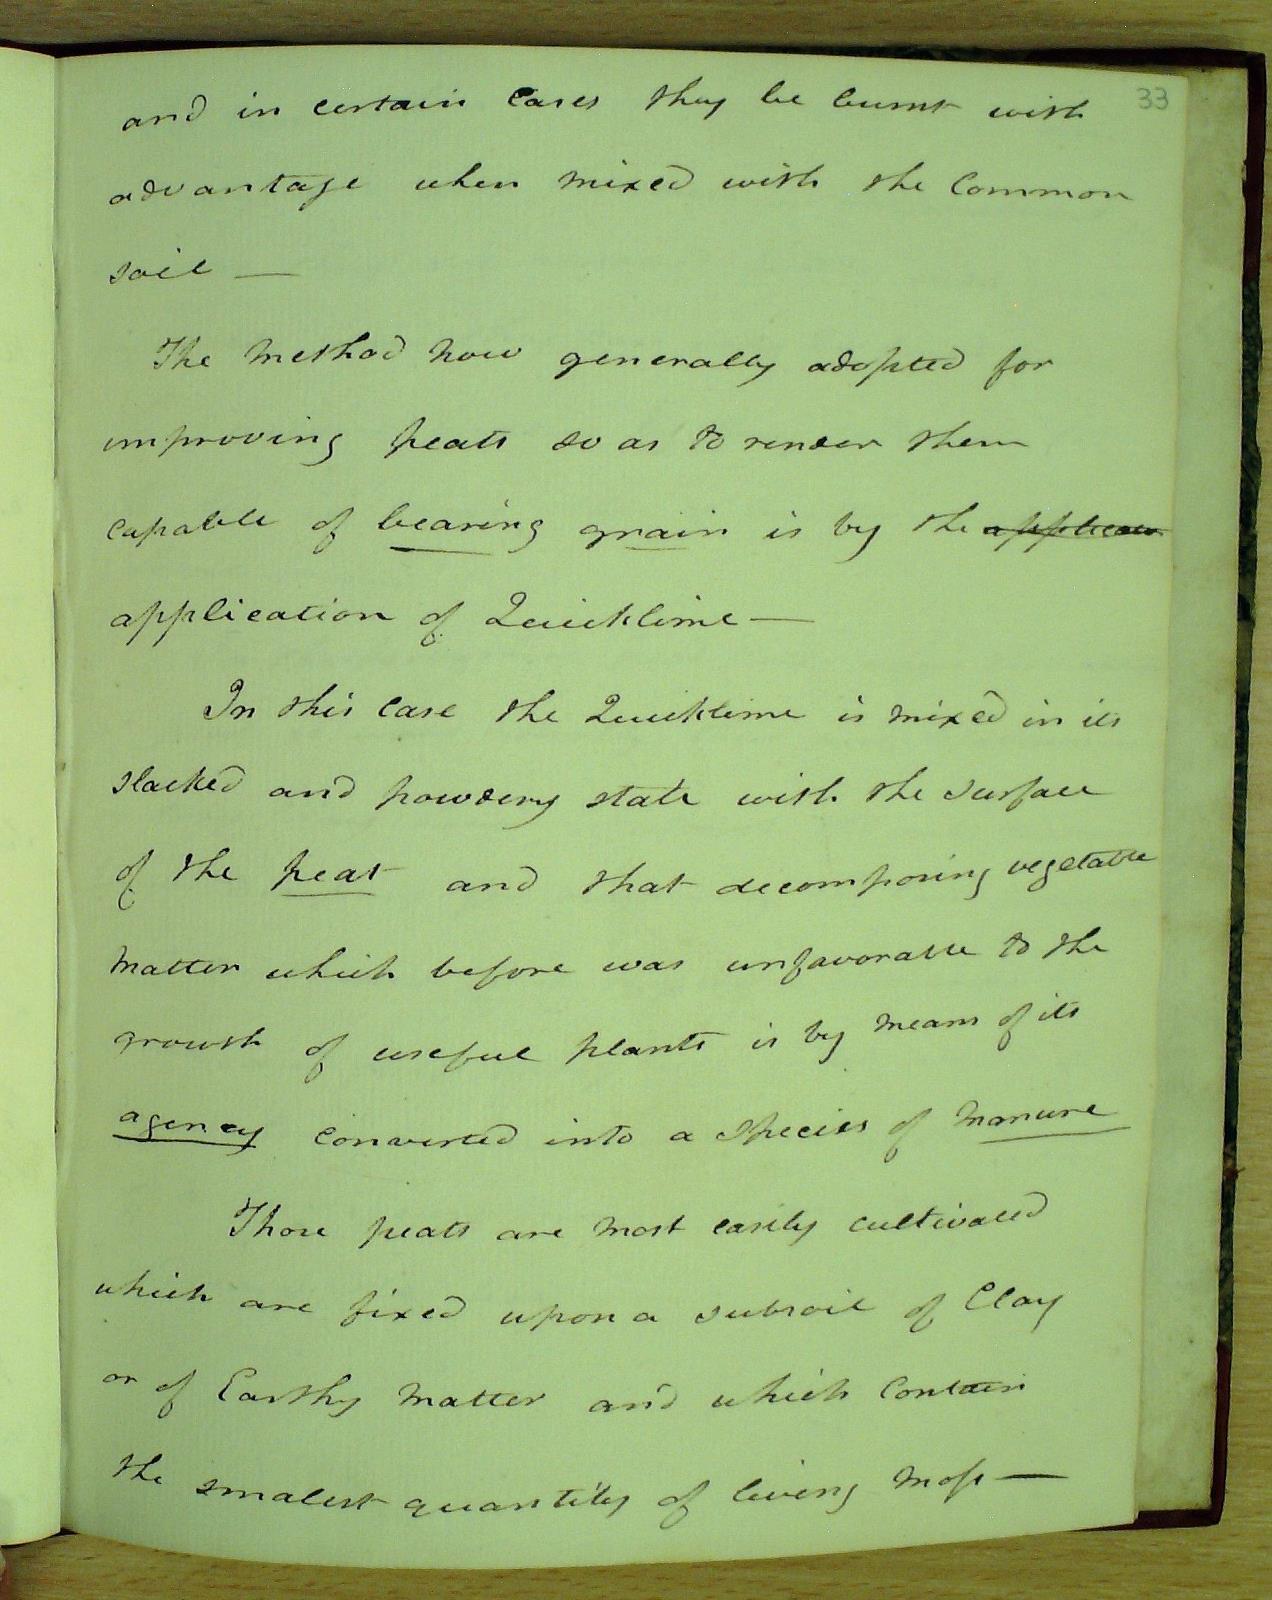 33
and in certain cases they be burnt with
advantage when mixed with the Common
soil —
The Method now generally adopted for
improving peats so as to render them
capable of bearing grain is by the applicat
application of Quicklime —
In this Case the Quicklime is mixed in its
slacked and powdery state with the surface
of the peat and that decomposing vegetable
matter which before was unfavorable to the
growth of useful plants is by means of its
agency converted into a species of Manure
Those peats are most easily cultivated
which are fixed upon a subsoil of Clay
or of Earthy Matter and which Contain
the smalest quantity of living Moss —